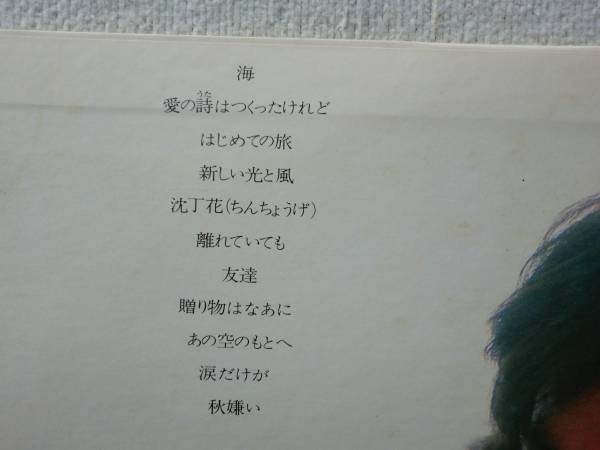 海
愛の詩はつくったけれど
うた
はじめての旅
新しい光と風
沈丁花(ちんちょうげ)
離れていても
友達
贈り物はなあに
あの空のもとへ
涙だけが
秋嫌い